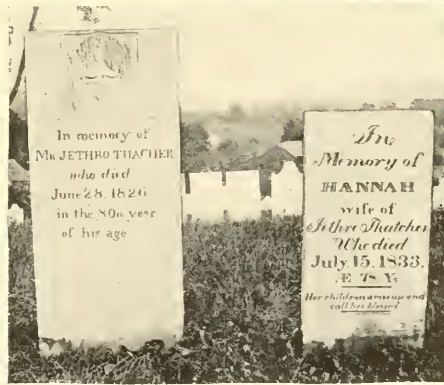 In memory of
Mr JETHRO THACHER
who died
June 28, 1826
in the 80th year
of his age
In
Memory of
HANNAH
wife of
Jethro Thatcher
Who died
July 15, 1833.
Æ 78 Ys
Her children arose up and
call her blessed